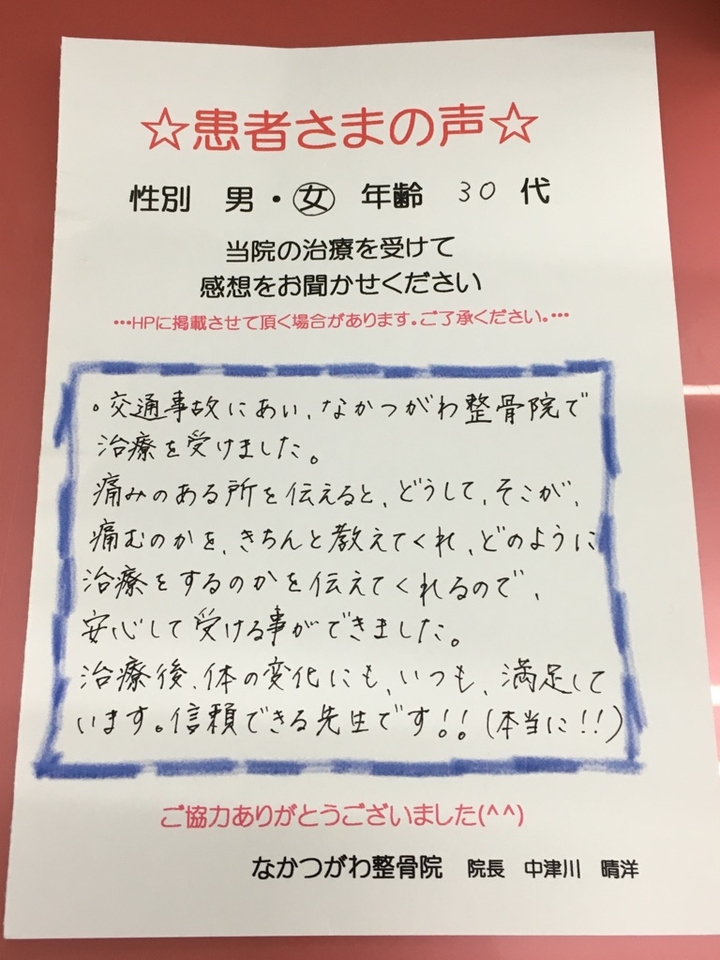 ☆患者さまの声☆
性別 男・女 年齢 30 代
当院の治療を受けて
感想をお聞かせください
…HPに掲載させて頂く場合があります。ご了承ください。…
。交通事故にあい、なかつがわ整骨院で
治療を受けました。
痛みのある所を伝えると、どうして、そこが、
痛むのかを、きちんと教えてくれ、どのように
治療をするのかを伝えてくれるので、
安心して受ける事ができました。
治療後、体の変化にも、いつも、満足して
います。信頼できる先生です!!(本当に!!)
ご協力ありがとうございました(^^)
なかつがわ整骨院 院長 中津川 晴洋